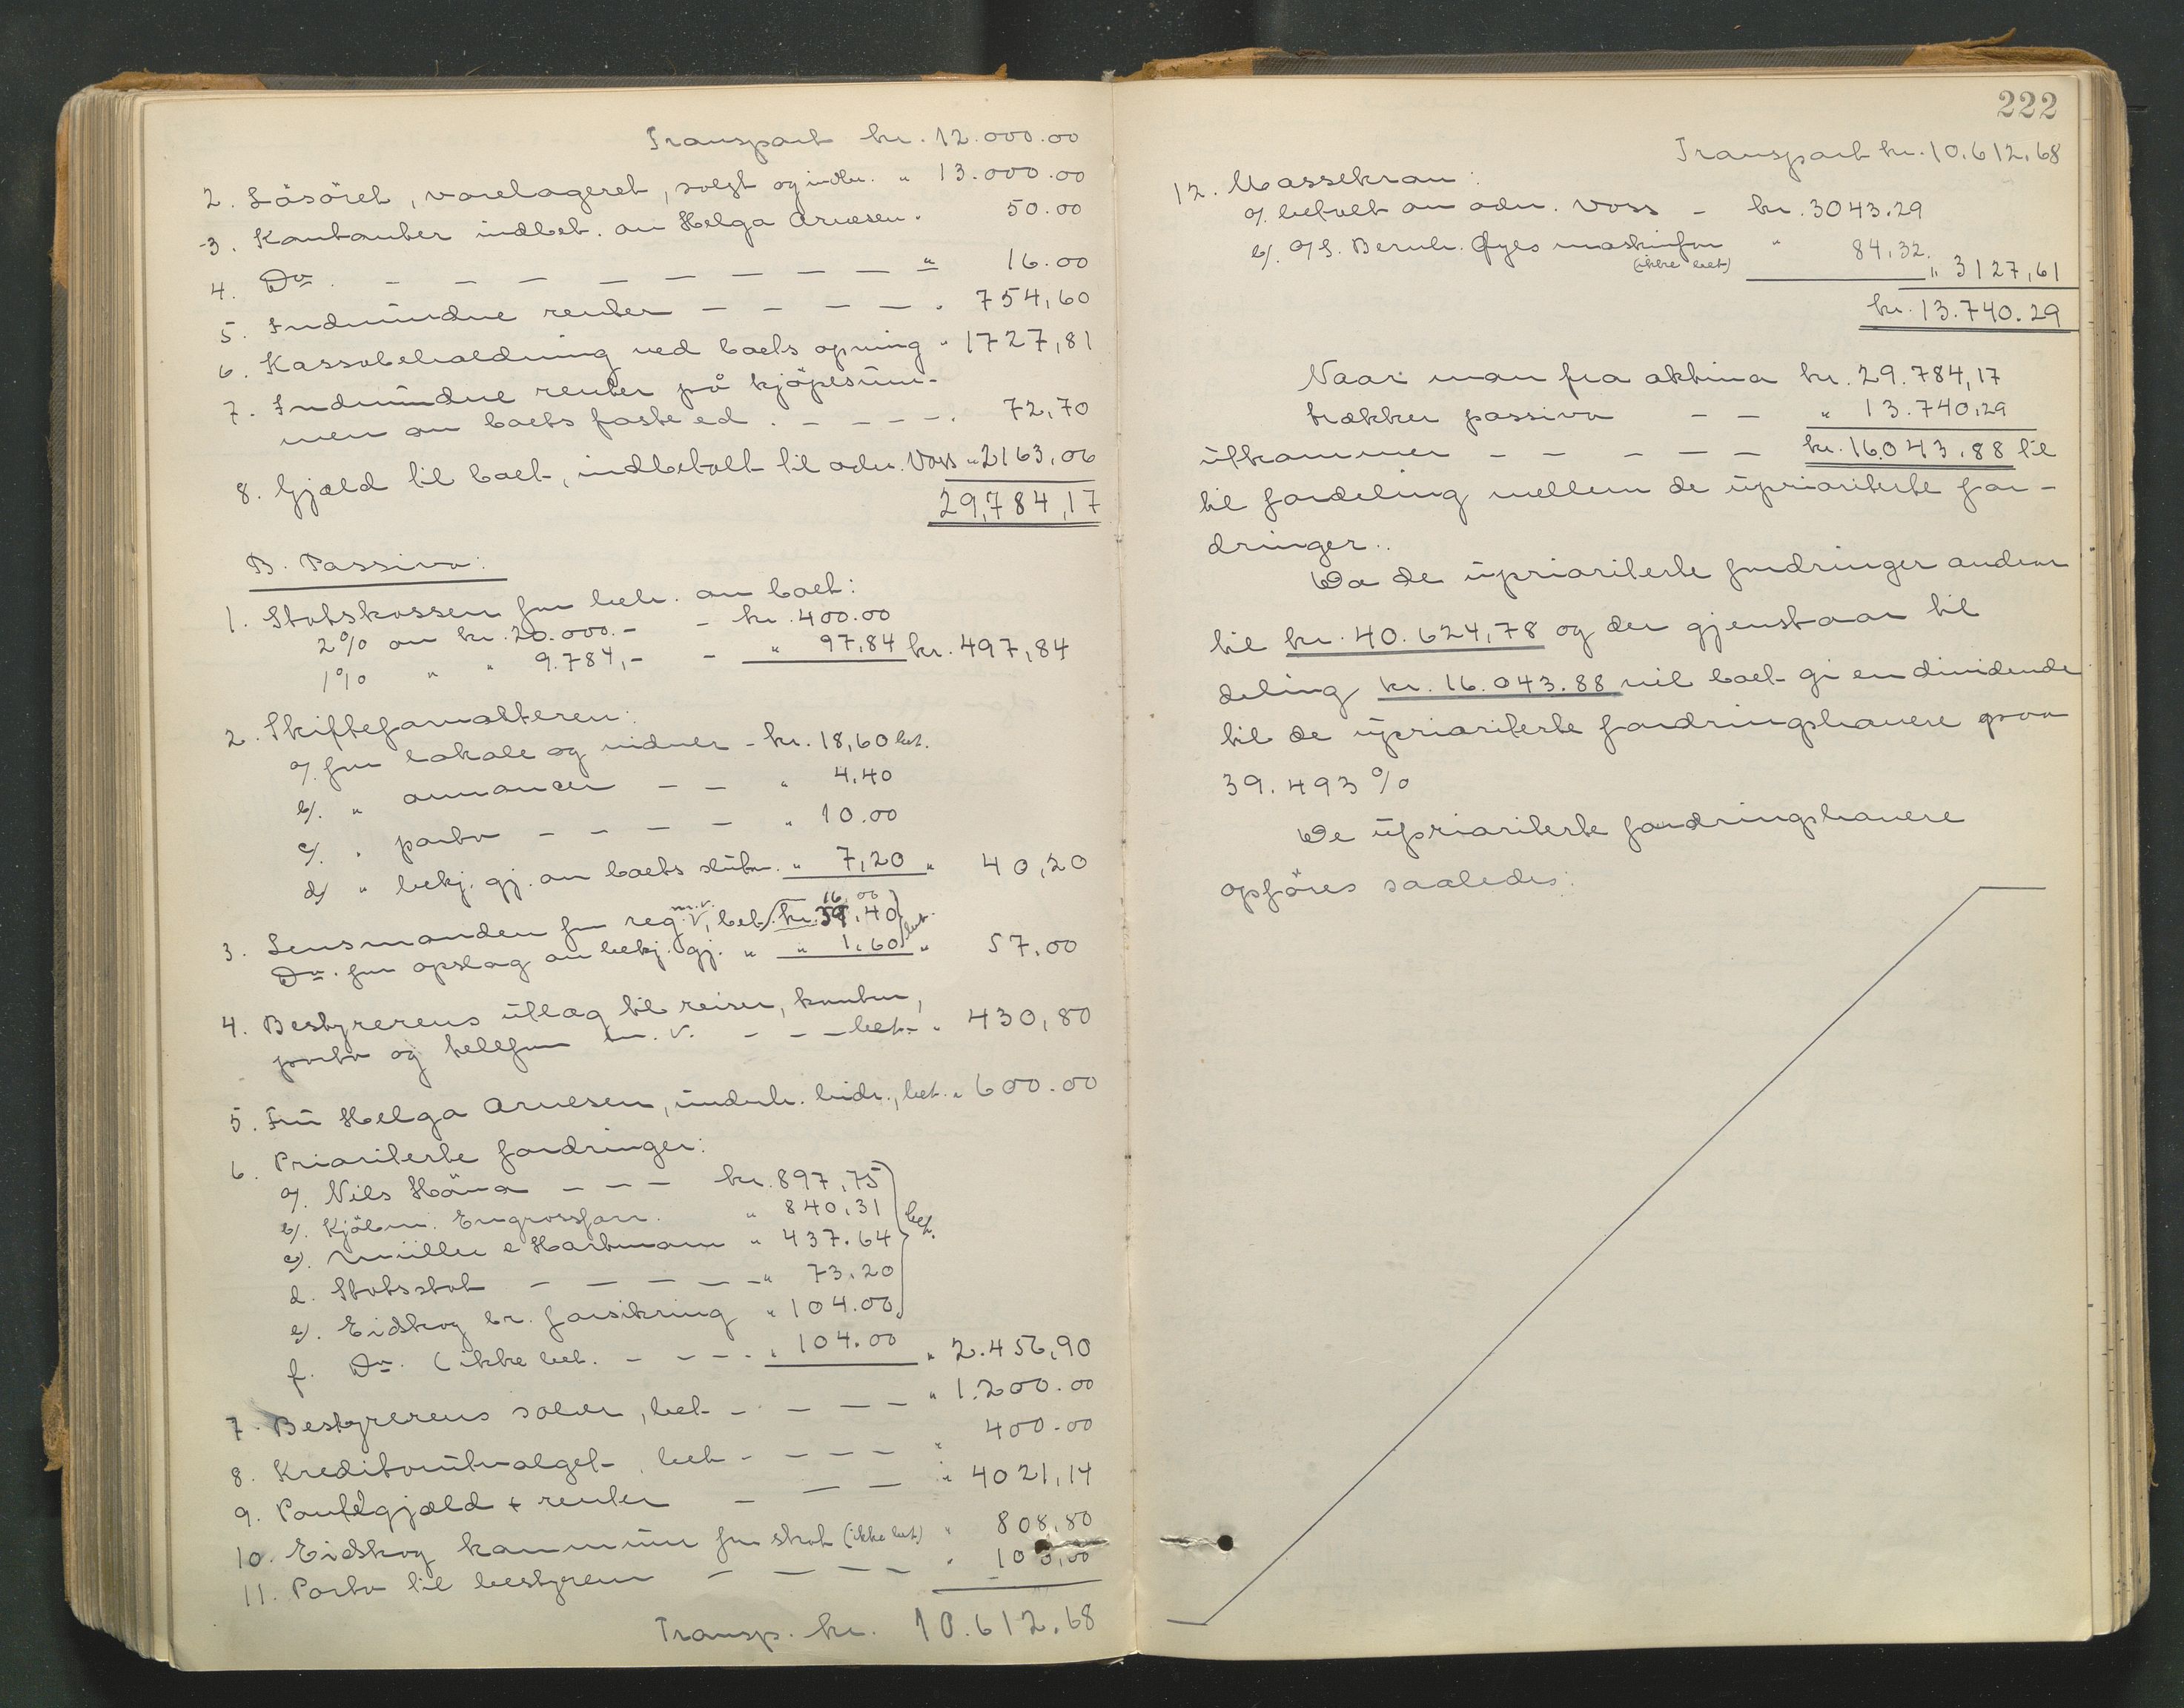 Transport kr. 12.000.00
2. Løsøret, varelageret, solgt og indbr. " 13.000.00
3. Kontanter indbet. av Helga Arnesen. 50.00
4. Do. — — — — — — — " 16.00
5. Indvundne renter — — — — . 754,60
6. Kassabeholdning ved boets åpning " 1727,81
7. Indvundne renter på kjøpesum-
men av boets faste ed. — — — . 72,70
8. Gjæld til boet, indbetalt til adv. Voss " 2163,06
29,784,17
B. Passiva:
1. Statskassen for beh. av boet:
2% av kr. 20.000.- - kr. 400.00
1% " " 9.784,- - " 97,84 kr. 497,84
2. Skifteforvalteren:
a/. for lokale og vidner - kr. 18,60 bet.
b/. " annoncer — — " 4,40
c/. " porto — — — — " 10.00
d/ " bekj. gj. av boets slutn. " 7,20 " 40,20
3. Lensmanden for reg. m.v., bet. kr. 40
Do. for opslag av bekj. gj. " " 1,60 bet. " 57.00
4. Bestyrerens utlæg til reiser, kontor,
porto og tellefon m.v. — — — bet. " 430,80
5. Fru Helga Arnesen, underh. bidr., bet. " 600.00
6. Prioriterte fordringer:
a/. Nils Håna — — — kr. 897,75
b/. Kjøbm. Engrosforr. " 840,31
c/. Müller & Hartmann " 437.64 bet.
d. Statsskat — — — — — " 73,20
e/. Eidskog br. forsikring " 104.00
f. Do. (ikke bet. — — — . " 104.00 " 2.456,90
7. Bestyrerens salær, bet — — — — " 1.200.00
8. Kreditorutvalget, bet — — — " 400.00
9. Pantegjæld + renter — — — " 4021,14
10. Eidskog kommune for skat (ikke bet) " 808,80
11. Porto til bestyreren — — — — " 100,00
Transp. kr. 10.612.68
222
Transport kr. 10.612,68
12. Massekrav:
a/. betalt av adv. Voss - kr. 3043.29
b/. A/S. Bernh. Øyes maskinforr " 84,32.
(ikke bet) " 3127,61
kr. 13.740.29
Naar man fra aktiva kr. 29.784,17
trækker passiva — — " 13.740,29
utkommer — — — — — kr. 16.043,88 til
til fordeling mellem de uprioriterte for-
dringer..
Da de uprioriterte fordringer andrar
til kr. 40.624,78 og der gjenstaar til
deling kr. 16.043.88 vil boet gi en dividende
til de uprioriterte fordringshavere paa
39.493 %
De uprioriterte fordringshavere
opføres saaledes: